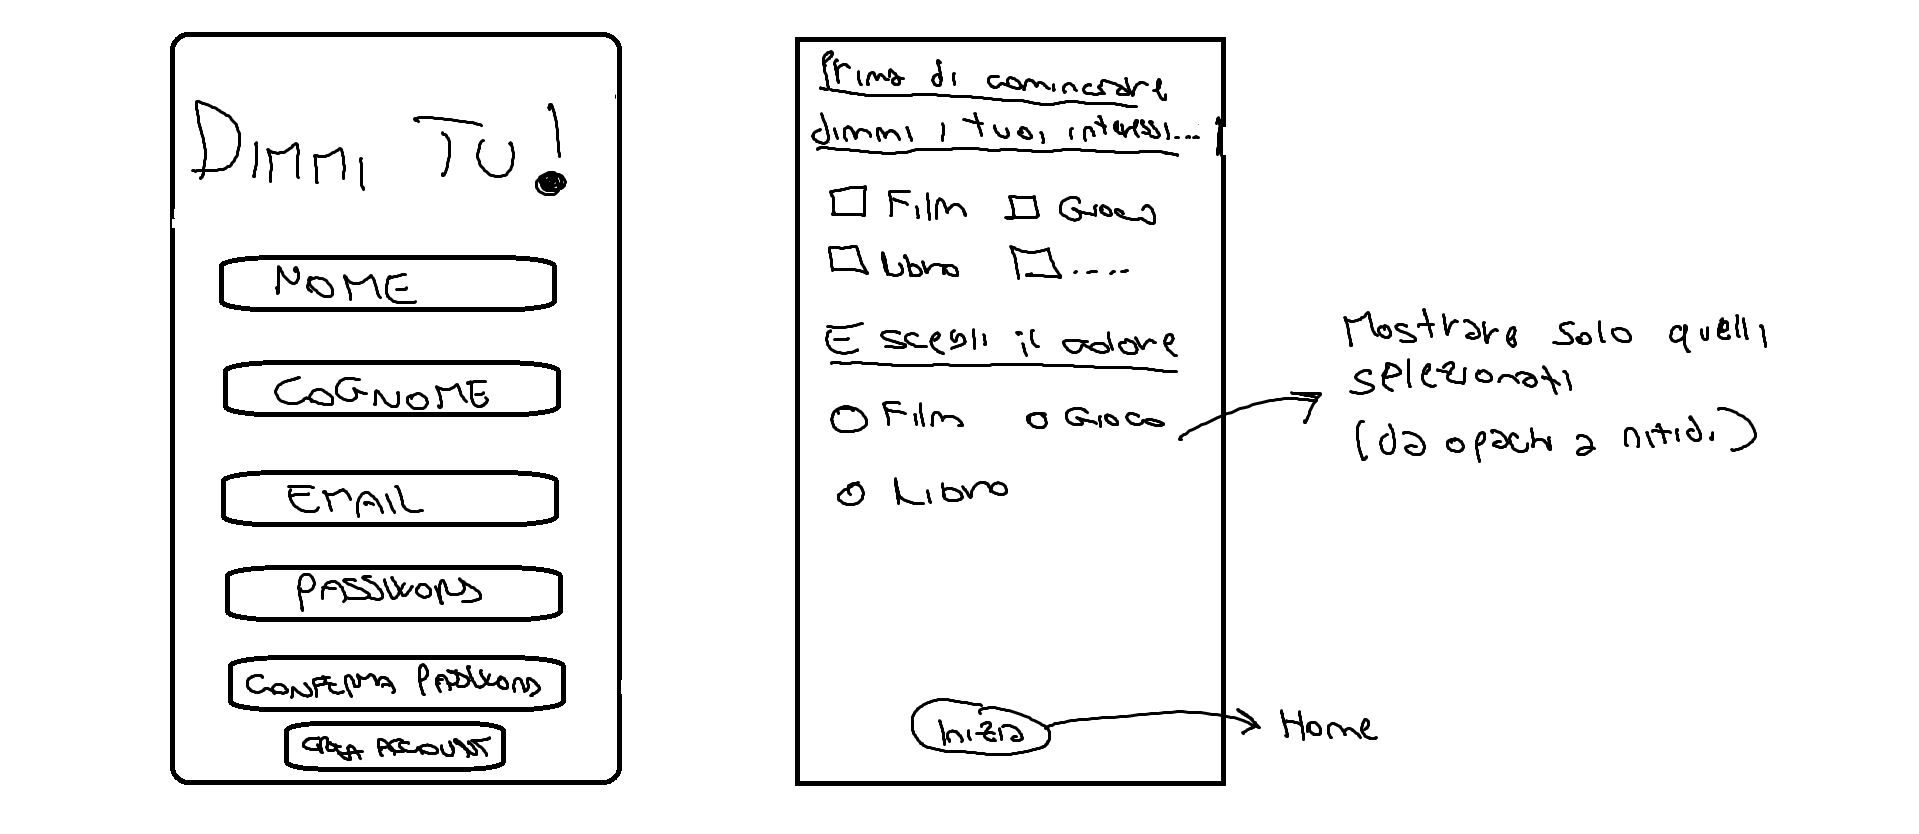 DIMMI TU!
NOME
COGNOME
EMAIL
PASSWORD
CONFERMA PASSWORD
CREA ACCOUNT
Prima di cominciare
dimmi i tuoi interessi...
Film Gioco
Libro .....
E scegli il colore
Film Gioco
Libro
Inizia
Mostrare solo quelli
selezionati
(da opachi a nitidi)
Home